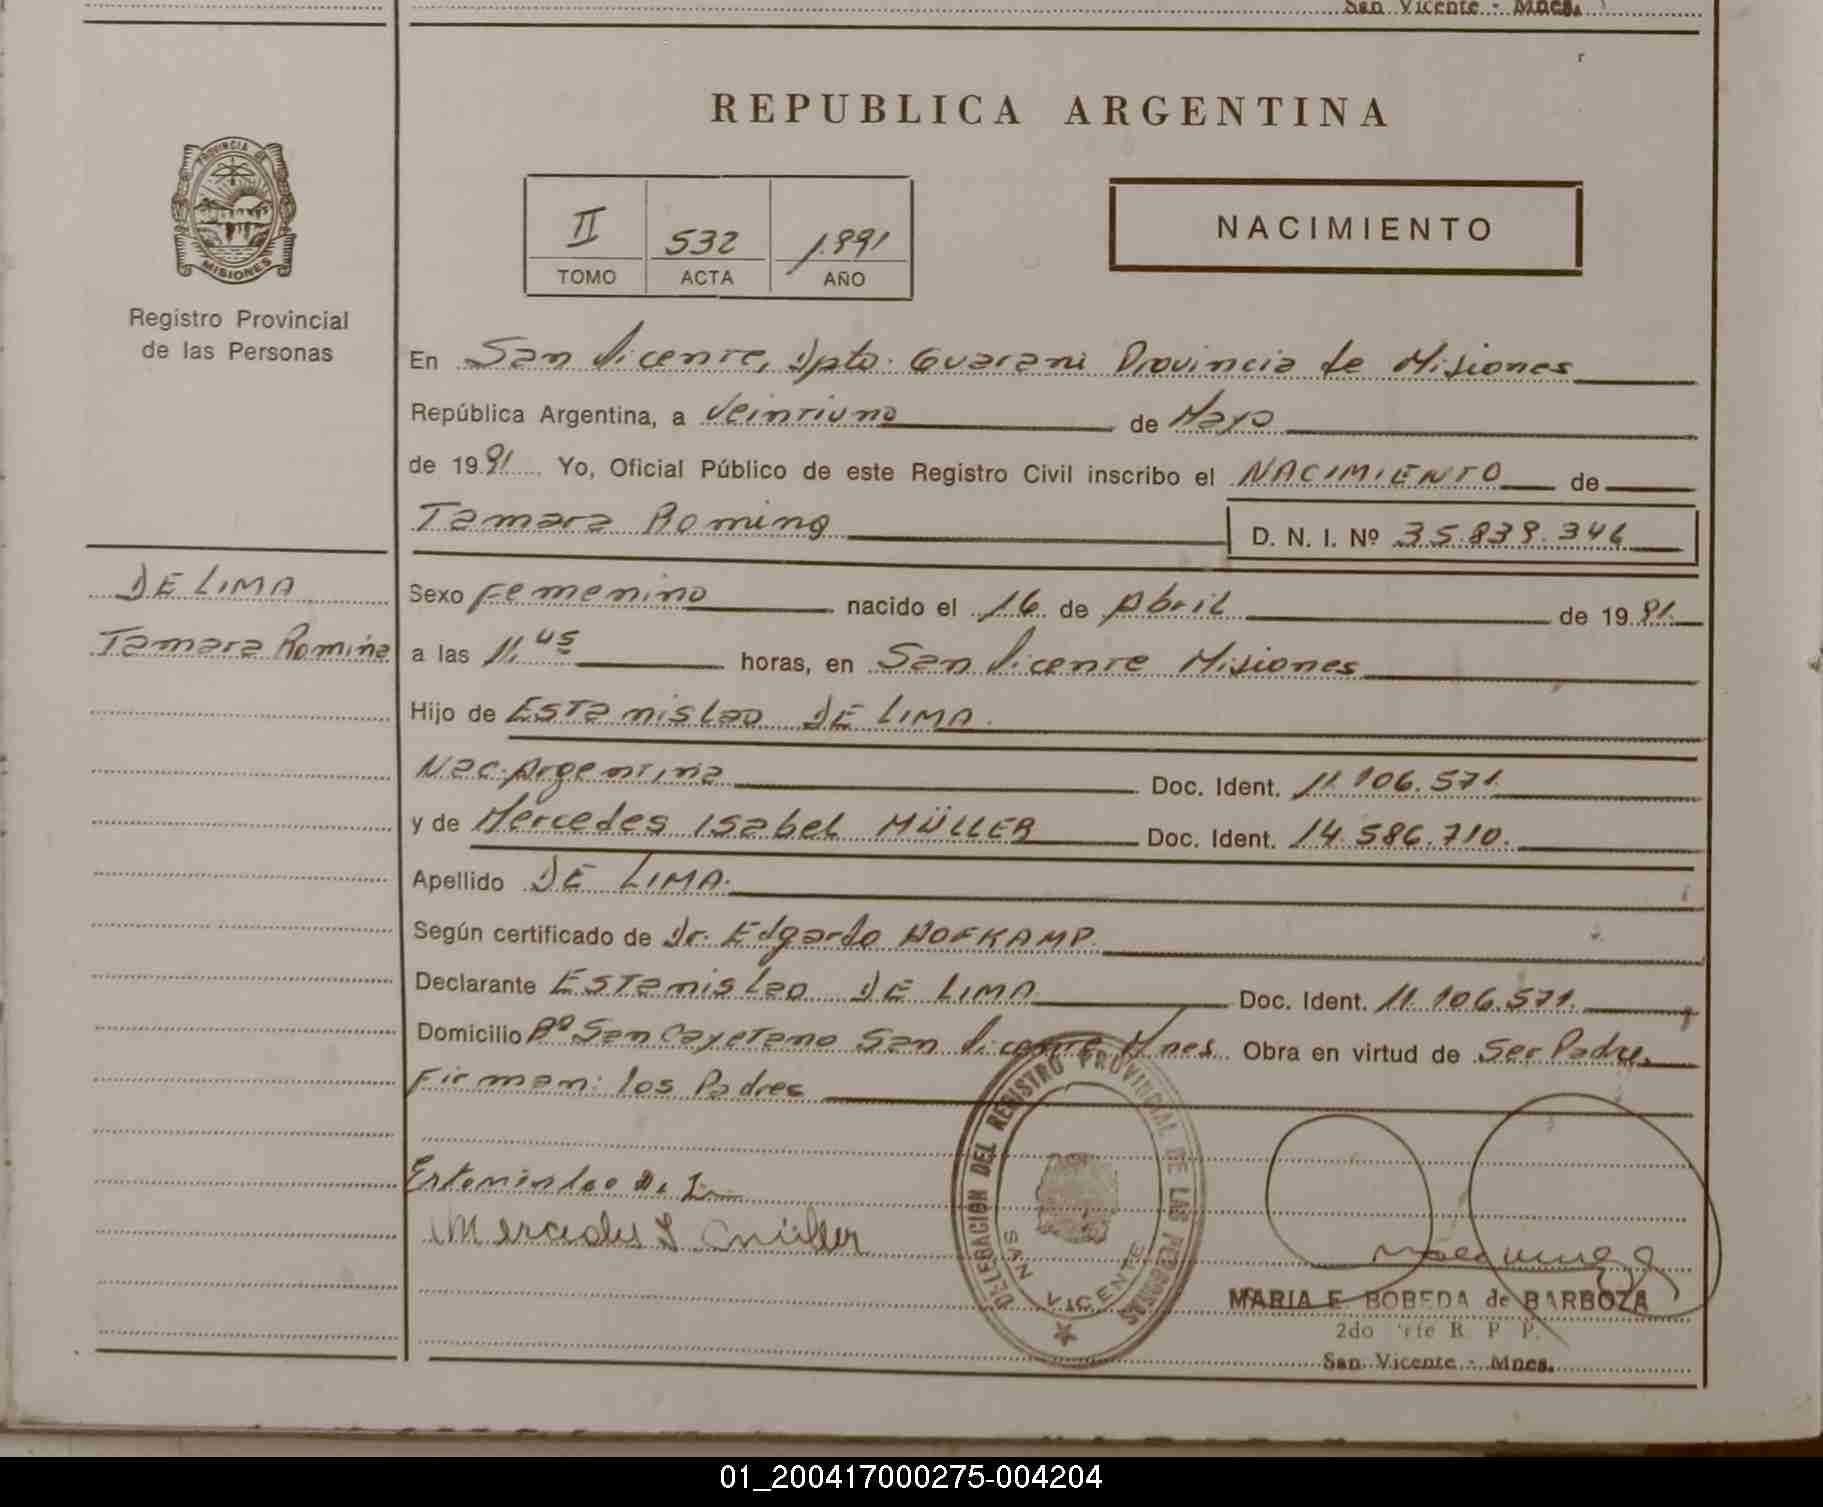 San Vicente - Mnes.
REPUBLICA ARGENTINA
PROVINCIA DE
MISIONES
Registro Provincial
de las Personas
II 532 1.991
TOMO ACTA AÑO
NACIMIENTO
En San Vicente, Dpto. Guarani Provincia de Misiones
República Argentina, a Veintiuno de Mayo
de 1991 Yo, Oficial Público de este Registro Civil inscribo el NACIMIENTO de
Tamara Romina D. N. I. Nº 35.839.346
DE LIMA
Tamara Romina
Sexo Femenino nacido el 16 de Abril de 1991.
a las 11,45 horas, en San Vicente Misiones
Hijo de Estanislao DE LIMA.
Nac. Argentina Doc. Ident. 11.106.571.
y de Mercedes Isabel MÜLLER Doc. Ident. 14.586.710.
Apellido DE LIMA.
Según certificado de Dr. Edgardo HOFKAMP.
Declarante Estanislao DE LIMA Doc. Ident. 11.106.571.
Domicilio Bº San Cayetano San Vicente Mnes. Obra en virtud de Ser Padre.
Firman: los Padres
Estanislao De Li
Mercedes I Müller
DELEGACIÓN DEL REGISTRO PROVINCIAL DE LAS PERSONAS
SAN VICENTE
MARIA E. BOBEDA de BARBOZA
2do R. P. P.
San Vicente - Mnes.
01_200417000275-004204